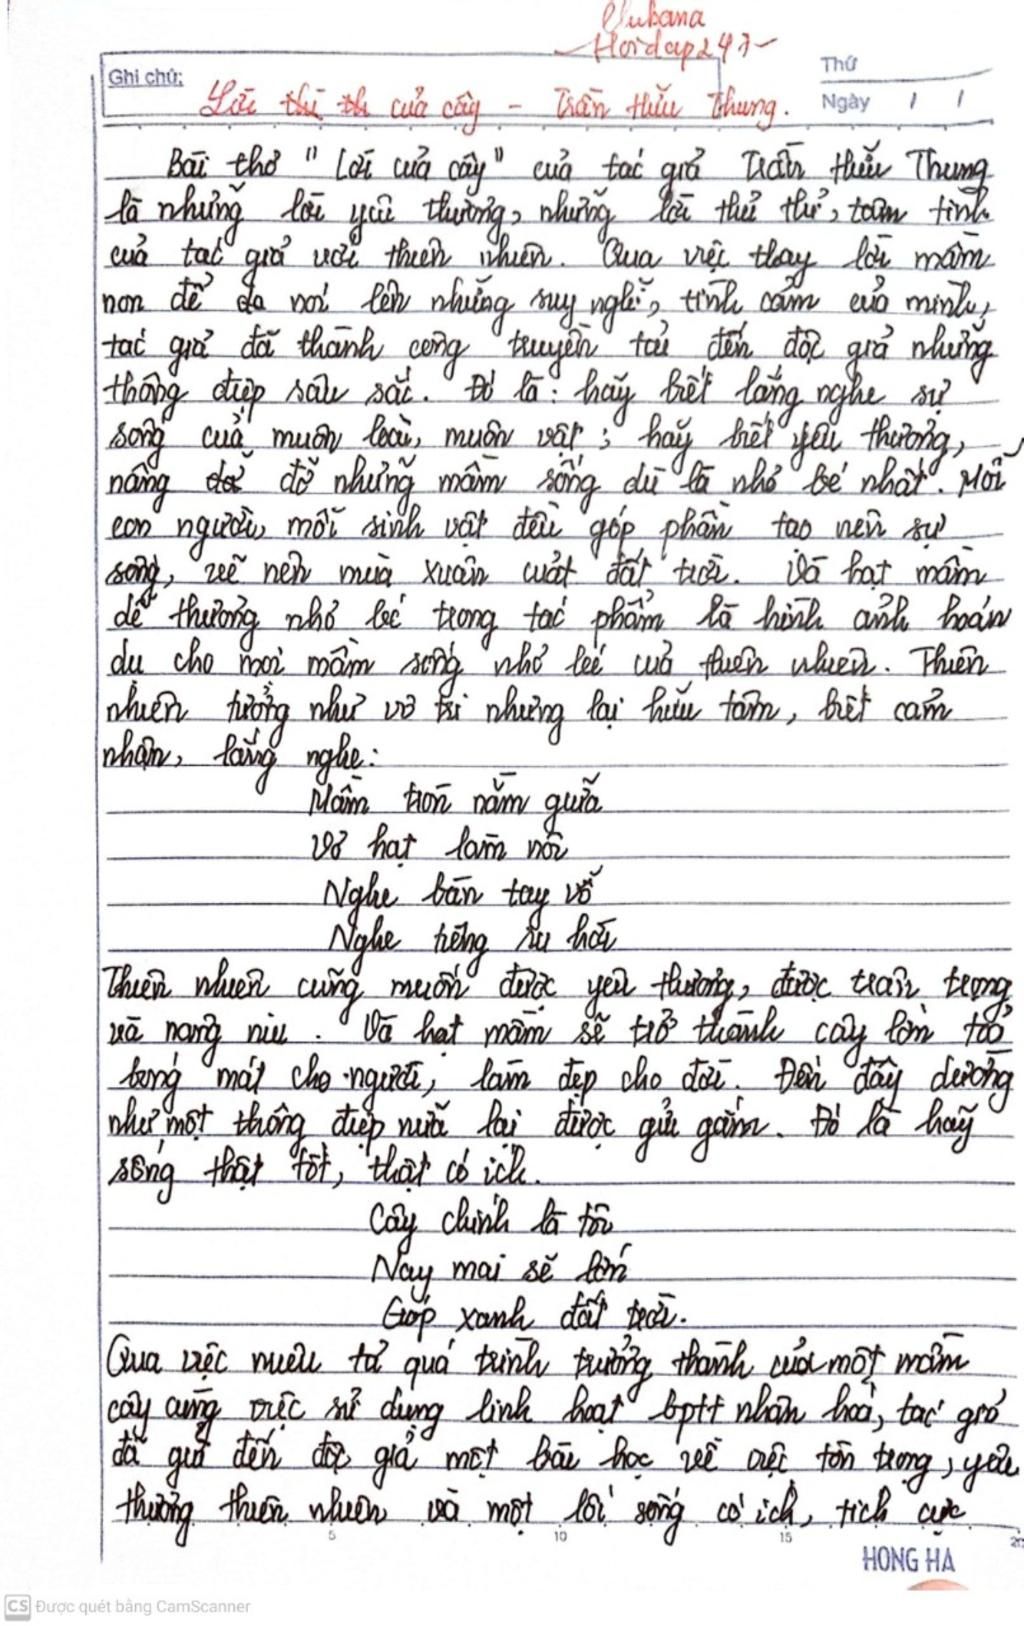 Hoidap247
Ghi chú:
Thứ
Lời thi th của cây - Trần Hữu Thung.
Ngày / /
Bài thơ "Lời của cây" của tác giả Trần Hữu Thung
là những lời yêu thương, những lời thủ thỉ, tâm tình
của tác giả với thiên nhiên. Qua việc thay lời mầm
non để nói lên những suy nghĩ, tình cảm của mình,
tác giả đã thành công truyền tải đến độc giả những
thông điệp sâu sắc. Đó là: hãy biết lắng nghe sự
sống của muôn loài, muôn vật; hãy biết yêu thương,
nâng đỡ những mầm sống dù là nhỏ bé nhất. Mỗi
con người, mỗi sinh vật đều góp phần tạo nên sự
sống, vẽ nên mùa xuân của đất trời. Và hạt mầm
dễ thương nhỏ bé trong tác phẩm là hình ảnh hoán
dụ cho mọi mầm sống nhỏ bé của thiên nhiên. Thiên
nhiên tưởng như vô tri nhưng lại hữu tâm, biết cảm
nhận, lắng nghe:
Mầm tròn nằm giữa
Vỏ hạt làm nôi
Nghe bàn tay vỗ
Nghe tiếng ru hời
Thiên nhiên cũng muốn được yêu thương, được trân trọng
và nâng niu. Và hạt mầm sẽ trở thành cây lớn tỏa
bóng mát cho người, làm đẹp cho đời. Đến đây dường
như một thông điệp nữa lại được gửi gắm. Đó là hãy
sống thật tốt, thật có ích.
Cây chính là tôi
Nay mai sẽ lớn
Góp xanh đất trời.
Qua việc miêu tả quá trình trưởng thành của một mầm
cây cùng việc sử dụng linh hoạt bptt nhân hoá, tác giả
đã gửi đến độc giả một bài học về việc tôn trọng, yêu
thương thiên nhiên và một lối sống có ích, tích cực
5 10 15 20
HONG HA
CS Được quét bằng CamScanner